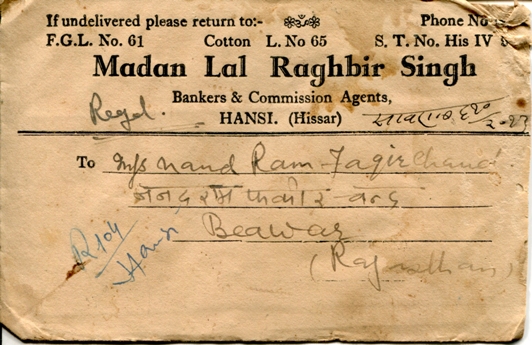 If undelivered please return to:- Phone No
F.G.L. No. 61 Cotton L. No 65 S. T. No. His IV
Madan Lal Raghbir Singh
Bankers & Commission Agents,
Regd. HANSI. (Hissar)
To M/s Nand Ram-Fagir Chand
Beawar
(Rajasthan)
R104
Hansi